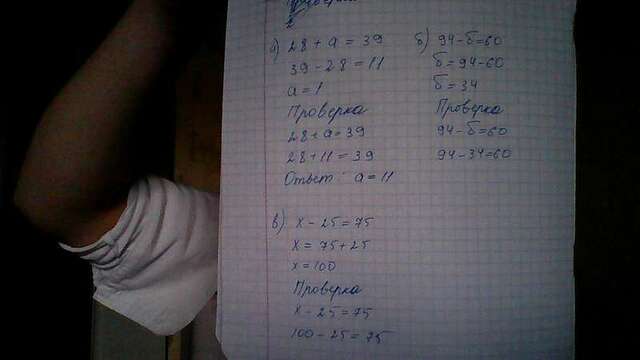 а) 28 + а = 39
39 - 28 = 11
а = 1
Проверка
28 + а = 39
28 + 11 = 39
Ответ: а = 11
б) 94 - б = 60
б = 94 - 60
б = 34
Проверка
94 - б = 60
94 - 34 = 60
в) х - 25 = 75
х = 75 + 25
х = 100
Проверка
х - 25 = 75
100 - 25 = 75